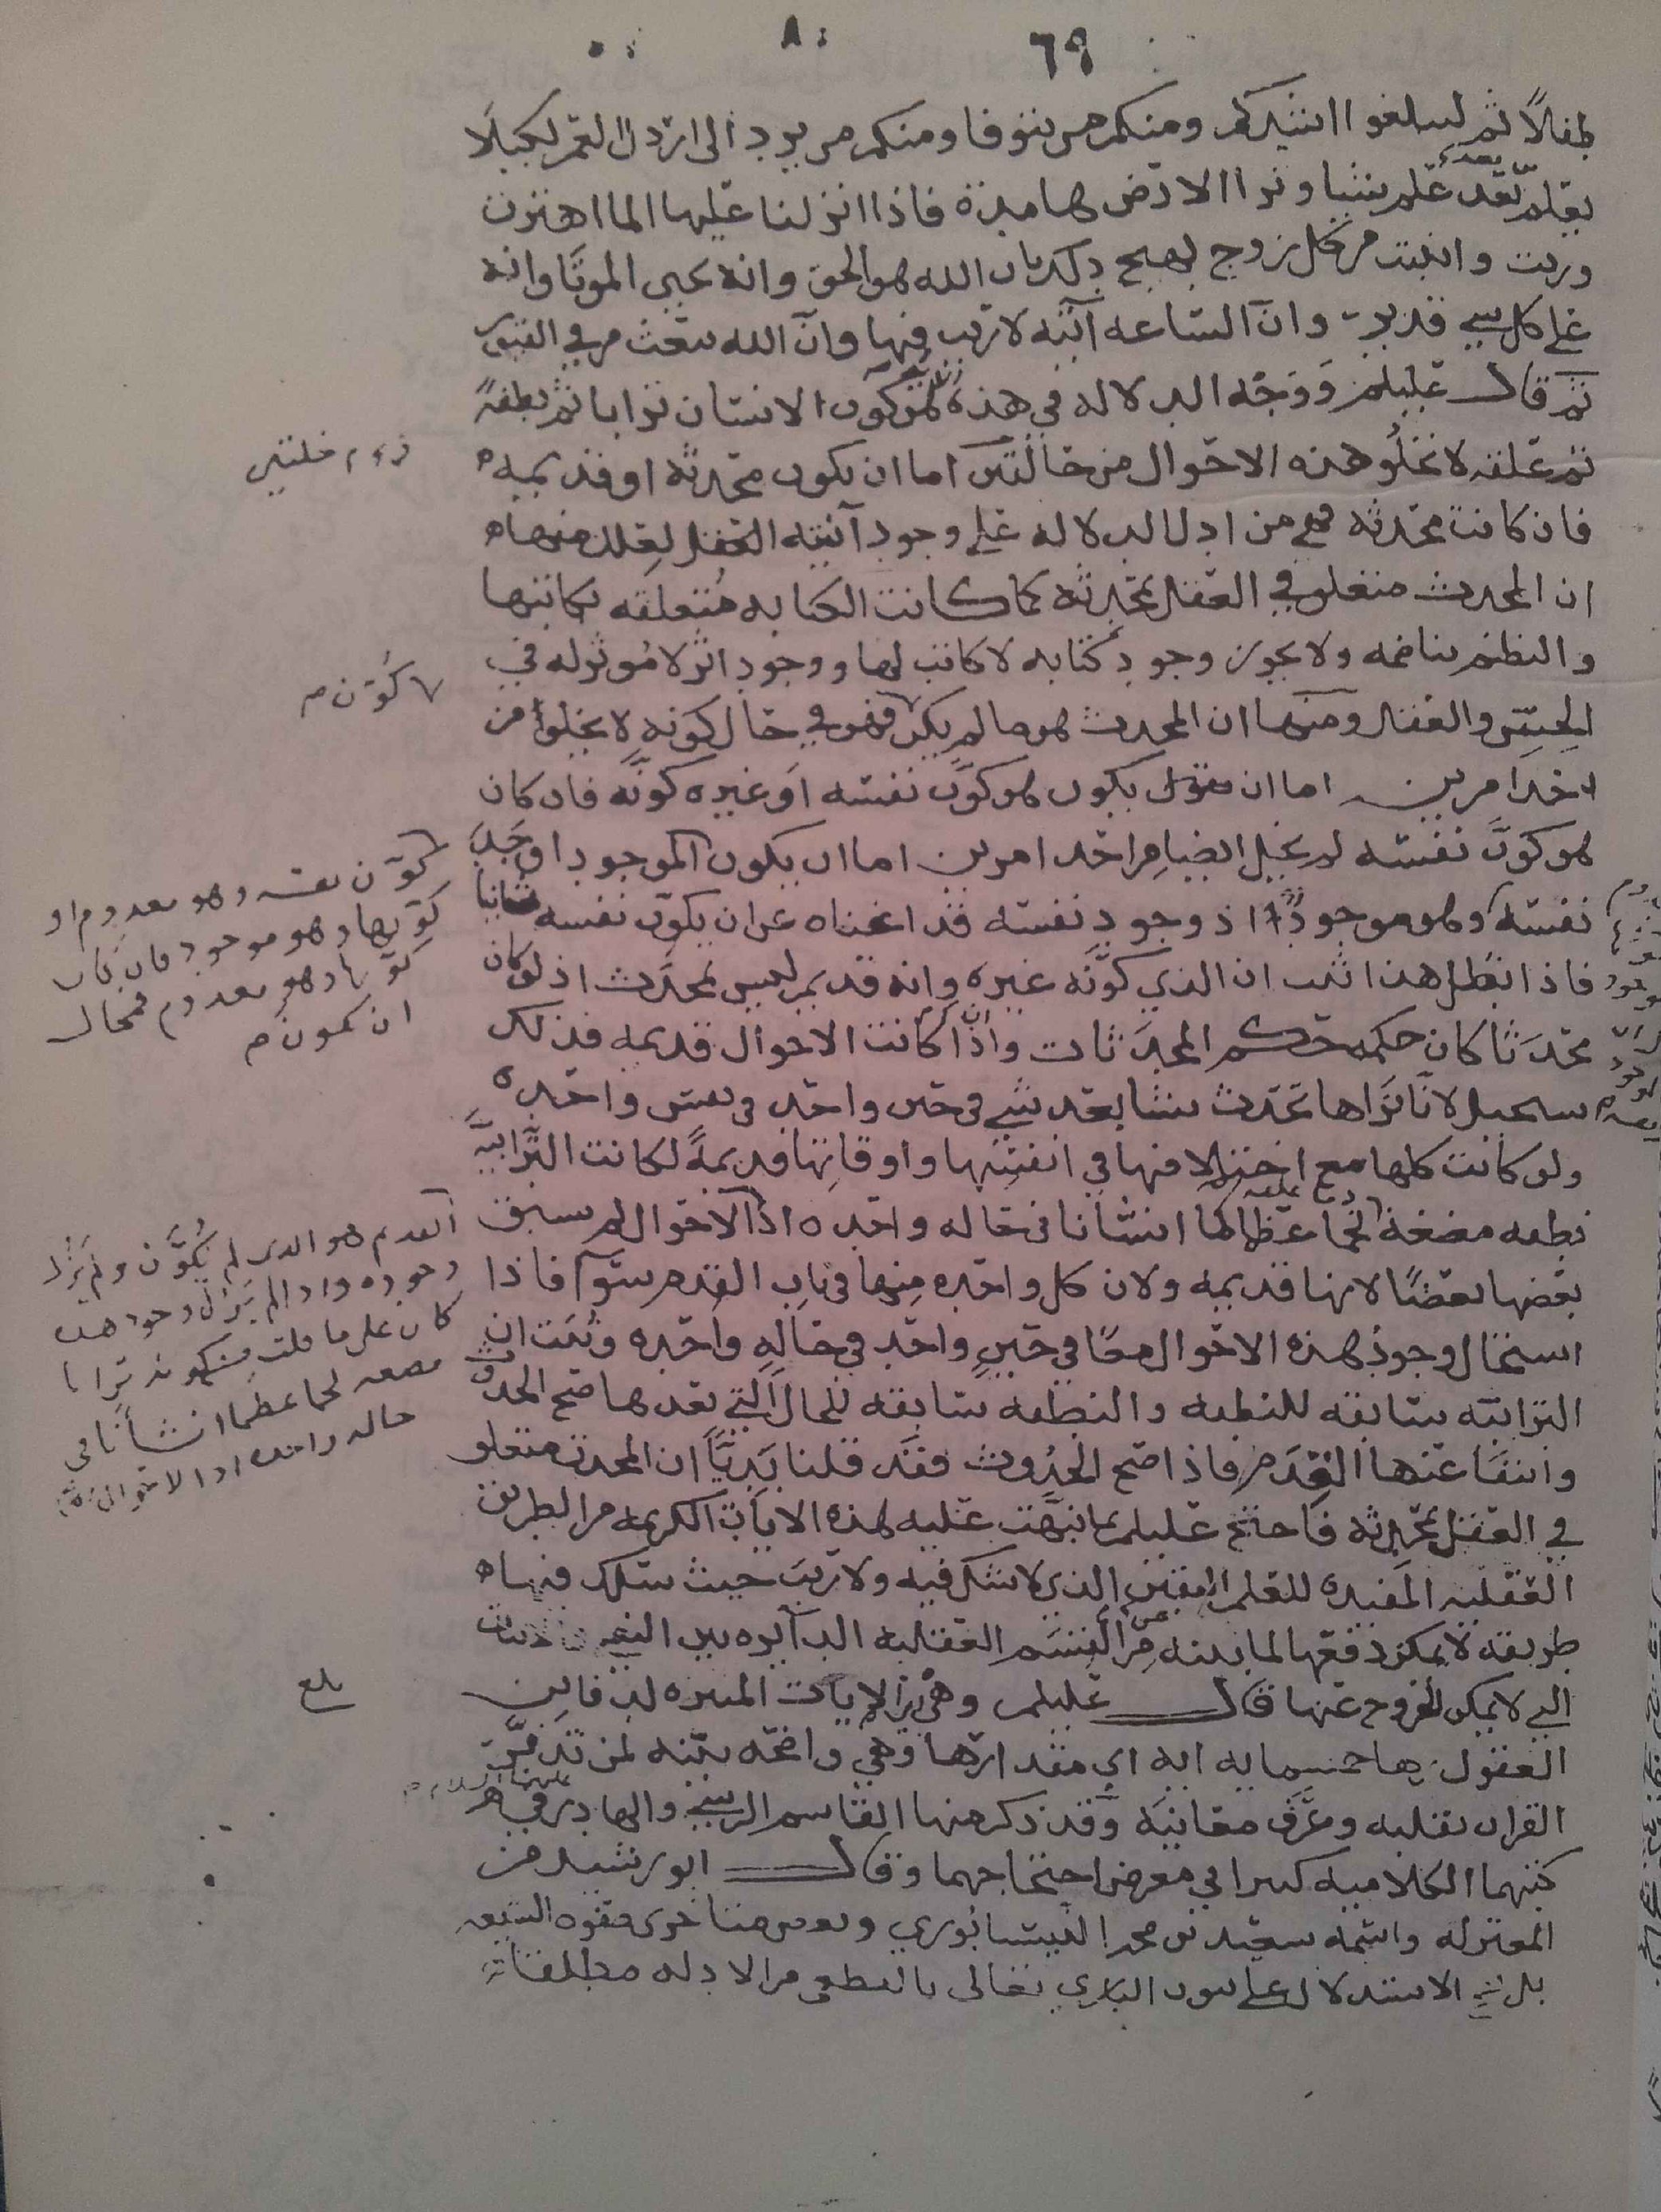 ٦٩
طفلاً ثم لتبلغوا اشدكم ومنكم من يتوفا ومنكم من يرد الى ارذل العمر لكيلا
يعلم بعد علم شيا وترا الارض هامدة فاذا انزلنا عليها الما اهتزت
وربت وانبتت من كل زوج بهيج ذلك بان الله هو الحق وانه يحيى الموتا وانه
على كل شي قدير وان الساعه آتيه لا ريب فيها وان الله يبعث من في القبور
ثم قال عليلم ووجه الدلاله في هذه كون الانسان ترابا ثم نطفة
ثم علقه لا تخلو هذه الاحوال من حالتين اما ان يكون محدثه او قديمه
فان كانت محدثه فهي من ادل الدلاله على وجود العقل لعلل منها
ان المحدث متعلق في العقل بمحدثه كما كانت الكتابه متعلقه بكاتبها
والنظم بناظمه ولا يجوز وجود كتابه لا كاتب لها ووجود اثر لا موثر له في
الحس والعقل ومنها ان المحدث هو ما لم يكن فهو في حال كونه لا يخلوا من
احد امرين اما ان يكون هو كوّن نفسه او غيره كونه فان كان
هو كوّن نفسه لم يخل ايضا من احد امرين اما ان يكون الموجود اوجد
نفسه وهو موجود اذ وجود نفسه قد اغناه عن ان يكون نفسه ثانيا
فاذا بطل هذا ثبت ان الذي كوّنه غيره وانه قديم ليس بمحدث اذ لو كان
محدثا كان حكمه حكم المحدثات وان كانت الاحوال قديمه فذلك
يستحيل لانا نراها تحدث شيا بعد شي في حين واحد في نفس واحده
ولو كانت كلها مع اختلافها في انفسها واوقاتها قديمة لكانت الترابية
نطفه مضغة لحما عظاما انسانا في حاله واحده اذ الاحوال لم يسبق
بعضها بعضا لانها قديمه ولان كل واحده منها في باب القدم سوآ فاذا
استحال وجود هذه الاحوال معا في حين واحد في حاله واحده وثبت ان
الترابيه سابقه للنطفه والنطفه سابقه للحال التي بعدها صح الحدث
وانتفا عنها القدم فاذا صح الحدوث فقد قلنا بديّا ان المحدث متعلق
في العقل بمحدثه فاحتج عليلم بما نبهت عليه هذه الايات الكريمه من الطريق
العقليه المفيده للعلم اليقين الذي لا شك فيه ولا ريب حيث سلك فيها
طريقه لا يمكن دفعها لما بينه من القسم العقليه الدايره بين النفي والاثبات
التي لا يمكن الخروج عنها قال عليلم وهي من الايات المثيره لدفاين
العقول بها خمسمايه ايه اي مقدارها وهي واضحه بينه لمن تدبر
القران بقلبه وعرف معانيه وقد ذكر منها القاسم الرسي والهادي في
كتبهما الكلاميه كثيرا في معرض احتجاجهما وقال ابو رشيد من
المعتزله واسمه سعيد بن محمد النيسابوري وبعض متاخري صفوه الشيعه
بل الاستدلال على ثبوت الباري تعالى بالقطعي من الادله مطلقا
كوّن م
كوّن نفسه وهو معدوم او
كوّنها وهو موجود فان كان
كوّنها وهو معدوم فمحال
ان تكون م
القديم هو الذي لم يكوّن ولم يزل
وجوده واذا لم يزل وجود هذه
كان على ما قلت من كونه ترابا
مضغه لحما عظما انسانا في
حاله واحده اذ الاحوال
بلغ